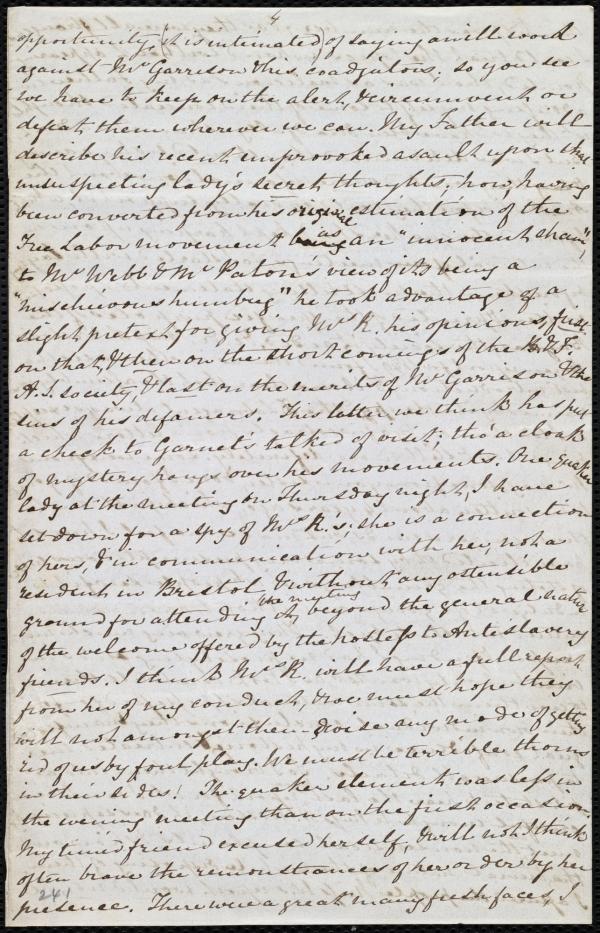 4
opportunity, (it is intimated) of saying an ill word
against Mr Garrison & his coadjutors; so you see
we have to keep on the alert, & circumvent or
defeat them wherever we can. My Father will
describe his recent unprovoked assault upon that
unsuspecting lady's secret thoughts, how, having
been converted from his original estimation of the
Free Labor movement being as an "innocent sham",
to Mr Webb & Mr Paton's view of its being a
"mischievous humbug" he took advantage of a
slight pretext for giving Mrs R. his opinions, first
on that, & then on the short comings of the B. & F.
A. S. society, & last on the merits of Mr Garrison & the
sins of his defamers. This latter we think has put
a check to Garnet's talked of visit; tho' a cloak
of mystery hangs over his movements. One quaker
lady at the meeting on Thursday night, I have
set down for a spy of Mrs R.'s; she is a connection
of hers, & in communication with her, not a
resident in Bristol, & without any ostensible
ground for attending the meeting beyond the general nature
of the welcome offered by the hostess to Antislavery
friends. I think Mrs R. will have a full report
from her of my conduct, & we must hope they
will not amongst them devise any mode of getting
rid of us by foul play. We must be terrible thorns
in their sides! The quaker element was less in
the evening meeting than on the first occasion.
My timid friend excused herself, & will not I think
often brave the remonstrances of her order by her
presence. There were a great many fresh faces, I
241